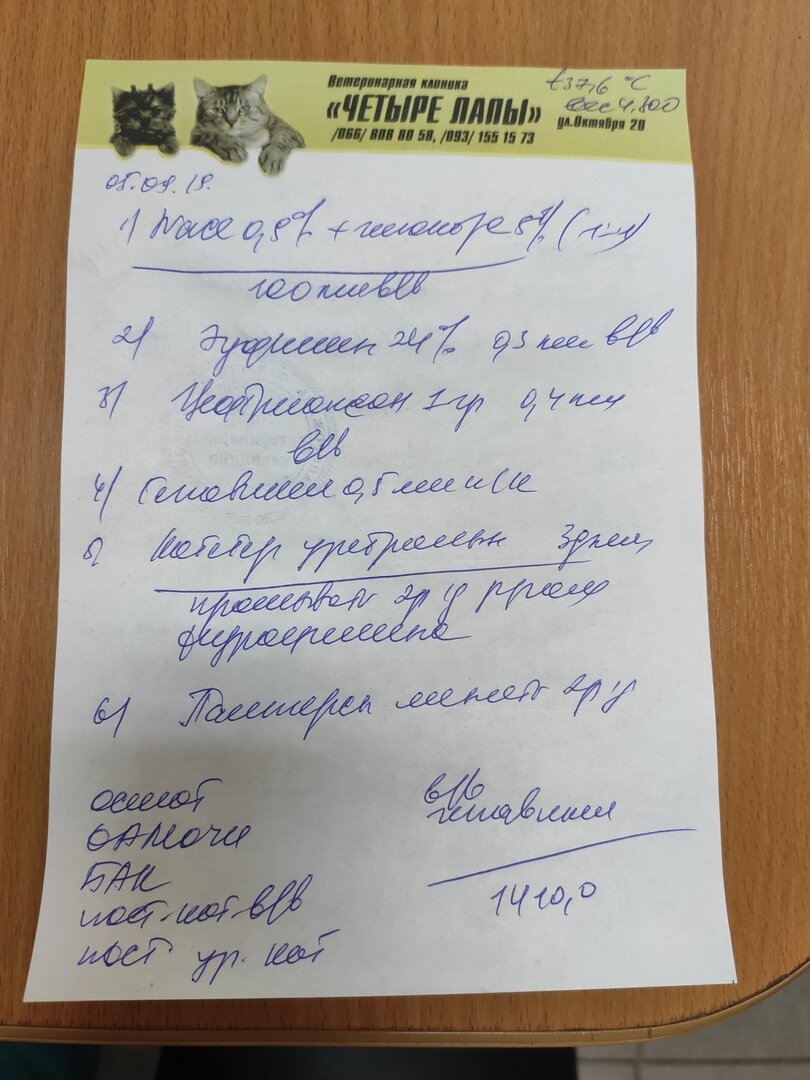 Ветеринарная клиника
«ЧЕТЫРЕ ЛАПЫ»
/066/ 808 80 58, /093/ 155 15 73
ул.Октября 20
t 37,6 °C
вес 4,800
05.09.19.
1) NaCl 0,9% + глюкоза 5% (1:1)
100 мл в/в
2) Эуфиллин 24% 0,3 мл в/в
3) Цефтриаксон 1 гр 0,4 мл
в/в
4) 0,5 мл п/к
5) Катетер уретральн 3 дня
промывать 2 р/д р-ром
фурацилина
6) менять 2 р/д
осмот
ОАмочи
БАК
пост. кат. в/в
пост ур. кат
в/в
вливания
1410,0